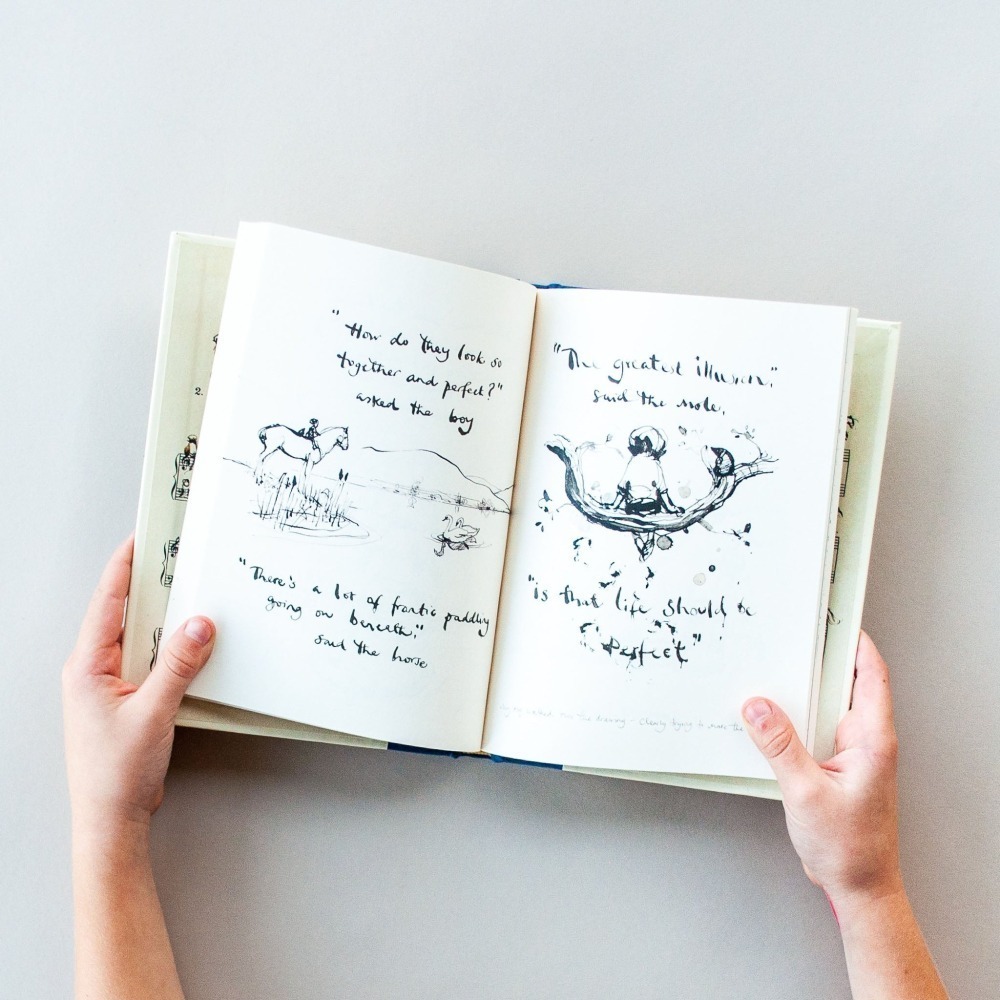 2.
"How do they look so
together and perfect?"
asked the boy
"There's a lot of frantic paddling
going on beneath,"
said the horse
"The greatest illusion,"
said the mole,
"is that life should be
perfect"
the drawing - clearly trying to make the